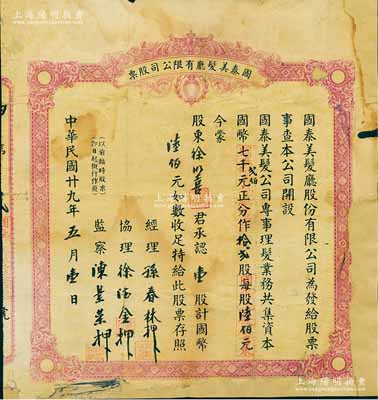 上海陽明拍賣
國泰美髮廳有限公司股票
國泰美髮廳股份有限公司為發給股票
事查本公司開設
國泰美髮公司專事理髮業務共集資本
國幣七千弍佰元正分作拾弍股每股陸佰元
今蒙
股東徐 喜君承認壹股計國幣
陸佰元如數收足特給此股票存照
經理 孫春林 押
協理 徐德金 押
監察 陳 押
(以前臨時股票即日起概行作廢)
中華民國廿九年五月壹日
上海陽明拍賣